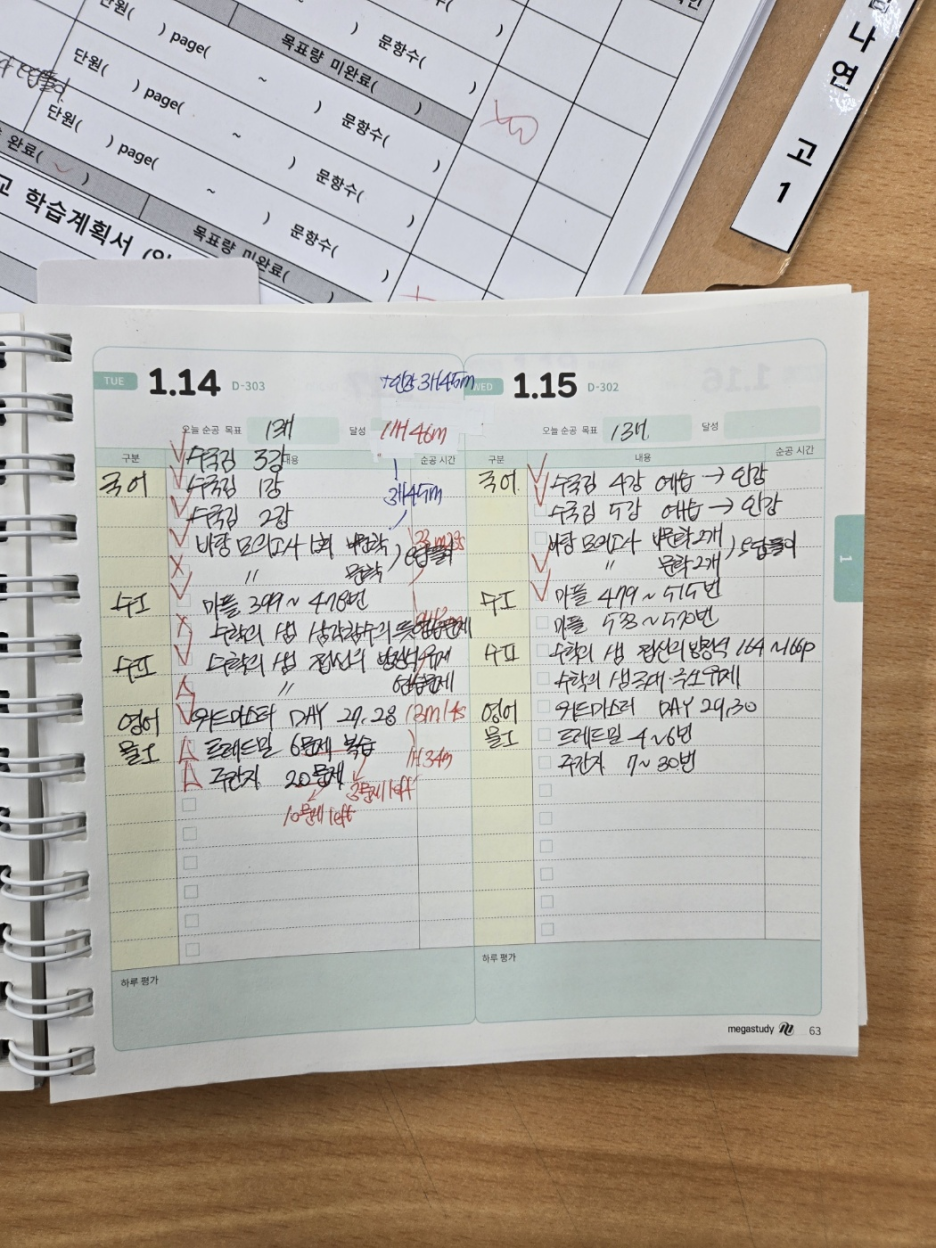 단원( ) page( ~ ) 문항수( )
목표량 미완료( )
단원( ) page( ~ ) 문항수( )
단원( ) page( ~ ) 문항수( )
완료( ) 목표량 미완료( )
학습계획서
나연
고1
TUE 1.14 D-303
+인강 3H45m
오늘 순공 목표 13개 달성 11H 46m
구분 내용 순공 시간
수국김 3강
국어 수국김 1강
3H45m
수국김 2강
바탕 모의고사 1회 비문학 ) 오답풀이
〃 문학
수I 마플 399~478번
수학의 샘 삼각함수의 뜻 연습문제
수II 수학의 샘 접선의 방정식 유제
〃 연습문제
영어 워드마스터 DAY 27, 28 13m14s
물I 프레드밀 6문제 복습
1H34m
주간지 20문제
3문제 left
10문제 left
하루 평가
WED 1.15 D-302
오늘 순공 목표 13개 달성
구분 내용 순공 시간
국어 수국김 4강 예습 → 인강
수국김 5강 예습 → 인강
바탕 모의고사 비문학 2개 ) 오답풀이
〃 문학 2개
수I 마플 479~515번
마플 533~570번
수II 수학의 샘 접선의 방정식 164~166p
수학의 샘 극대·극소 유제
영어 워드마스터 DAY 29, 30
물I 프레드밀 4~6번
주간지 7~30번
하루 평가
1
megastudy 63